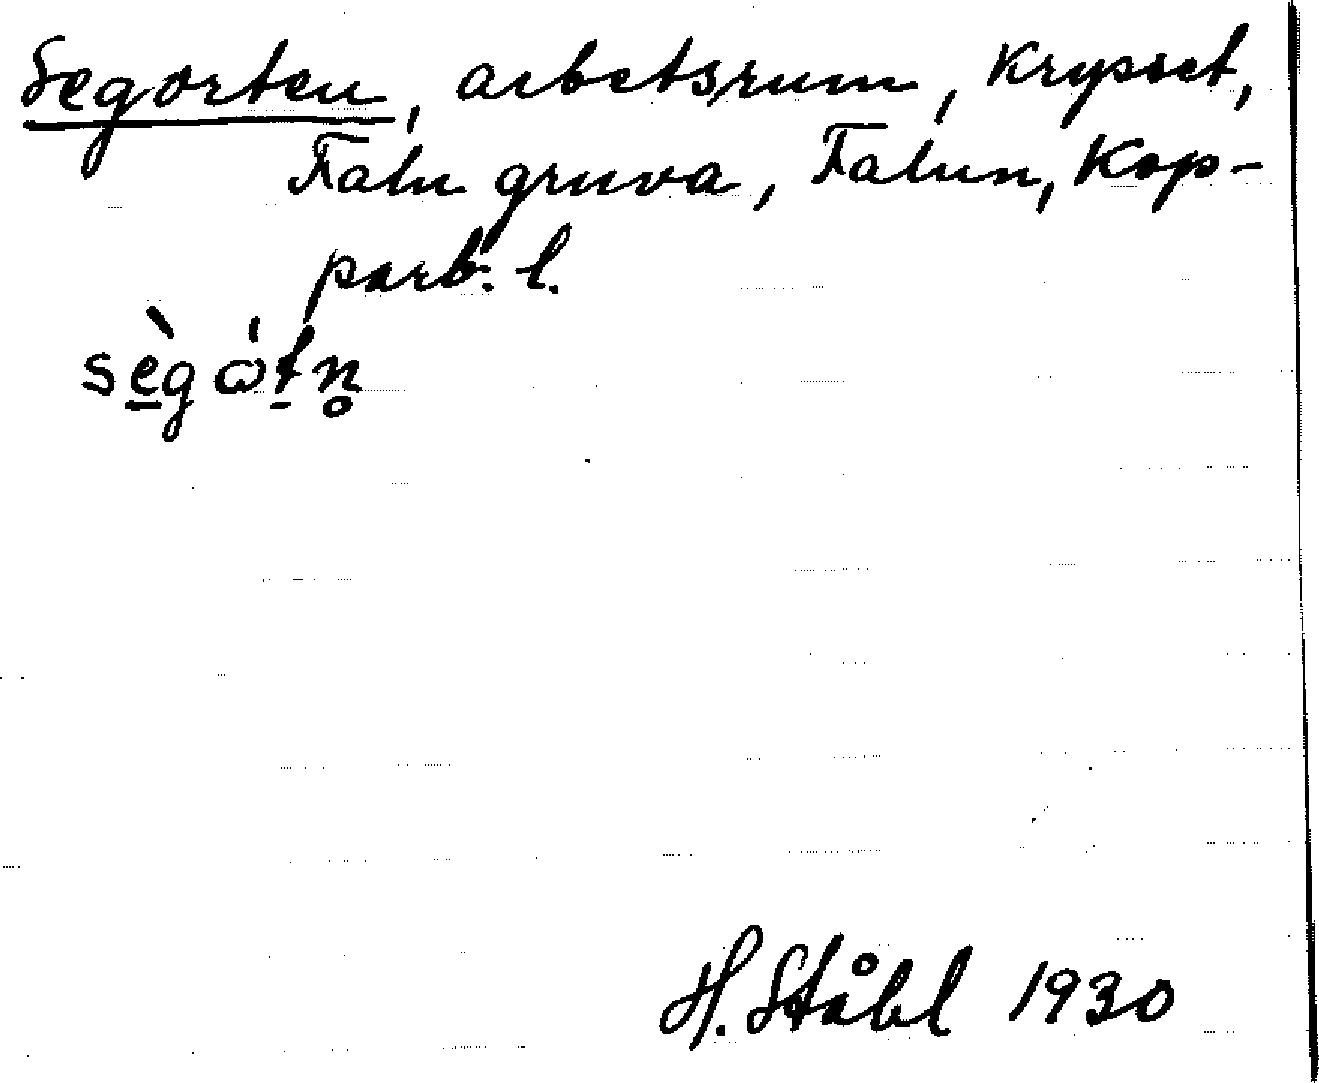 Segorten, arbetsrum, Krypset,
Falu gruva, Falun, Kop-
parb. l.
sègὼtn̥
H. Ståhl 1930